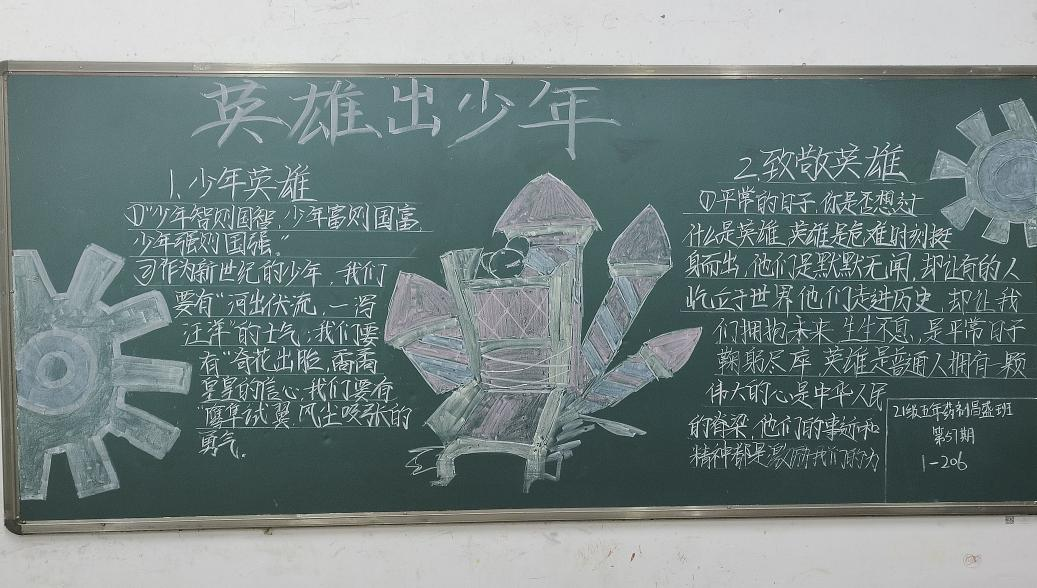 英雄出少年
1.少年英雄
①"少年智则国智,少年富则国富,
少年强则国强。"
②作为新世纪的少年,我们
要有"河出伏流,一泻
汪洋"的士气,我们要
有"奇花出胎,矞矞
皇皇的信心,我们要有
"鹰隼试翼,风尘吸张的
勇气。
2.致敬英雄
①平常的日子,你是否想过
什么是英雄,英雄是危难时刻挺
身而出,他们是默默无闻,却让有的人
屹立于世界,他们走进历史,却让我
们拥抱未来,生生不息,是平常日子
鞠躬尽瘁,英雄是普通人拥有一颗
伟大的心是中华人民
的脊梁,他们的事迹和
精神都是激励我们的力
21级五年药剂昌盛班
第57期
1-206